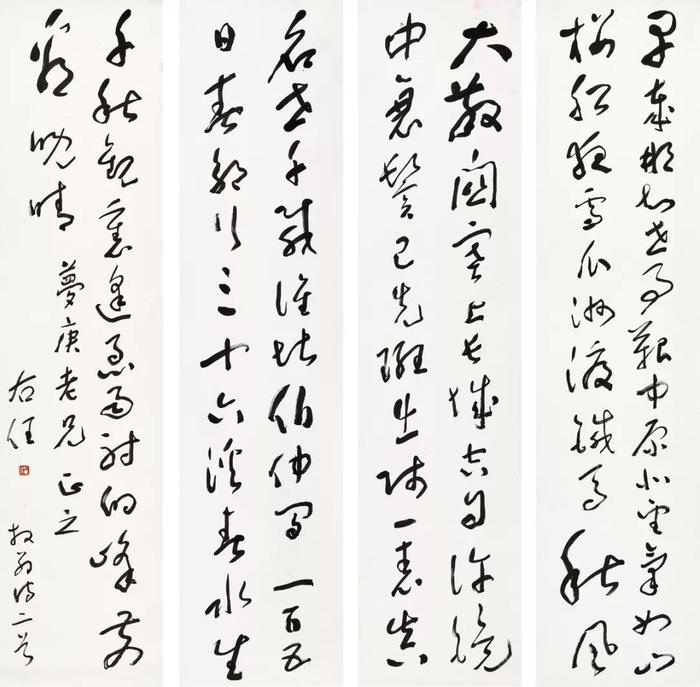 早歲那知世事艱中原北望氣如山
樓船夜雪瓜洲渡鐵馬秋風
大散關塞上長城空自許鏡
中衰鬢已先斑出師一表真
名世千載誰堪伯仲間一百五
日春郊行三十六溪春水生
千秋觀裏逢急雨射的峰前
看晚晴
夢庚老兄正之
右任
放翁詩二首